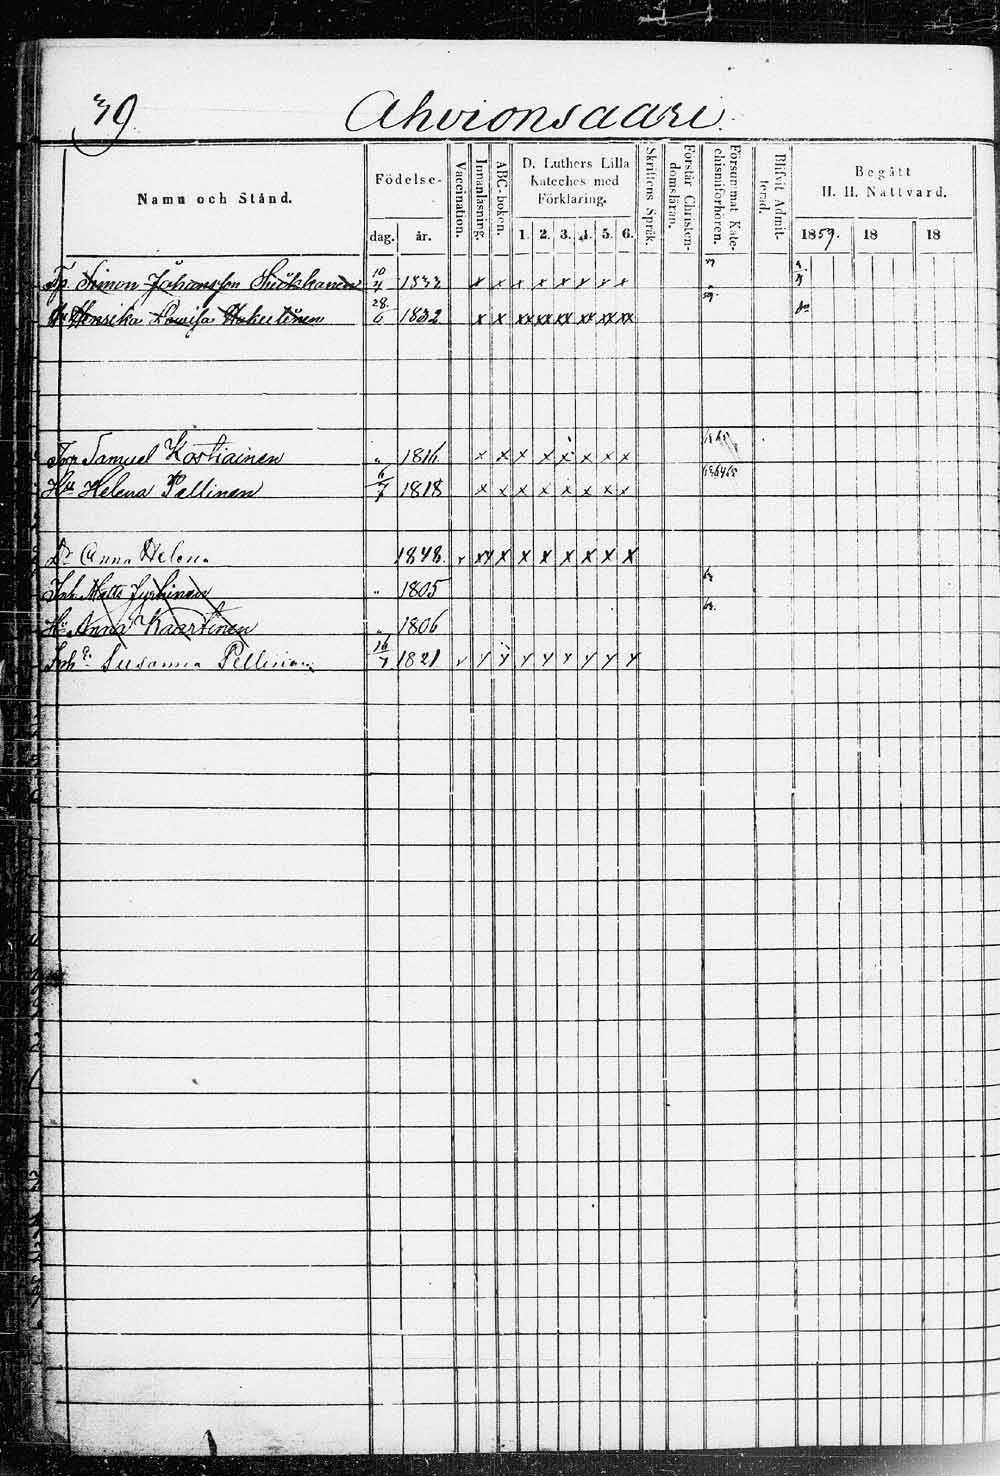 39. Ahvionsaari.
Namn och Stånd. Födelse- dag. år. Vaccination. Innanläsning. ABC-boken. D. Luthers Lilla Kateches med Förklaring. 1. 2. 3. 4. 5. 6. Skriftens Språk. Förstår Christendomsläran. Försummat Katechismiförhören. Blifvit Admitterad. Begått H. H. Nattvard. 1859. 18 18
Tp. Simon Johansson 10/4 1833 x x x x x x x x
Henrika Lovisa 28/6 1832 x x xx xx xx xx xx xx
Torp Samuel Kostiainen " 1816 x x x x x x x x
Hu Helena Pellinen 6/7 1818 x x x x x x x x
Dr Anna Helena 1848. v xx x x x x x x x
Inh. Matts " 1805
Hu Anna Kaartinen " 1806
Inh. Susanna Pellinen 16/7 1821 v y y y y y y y y